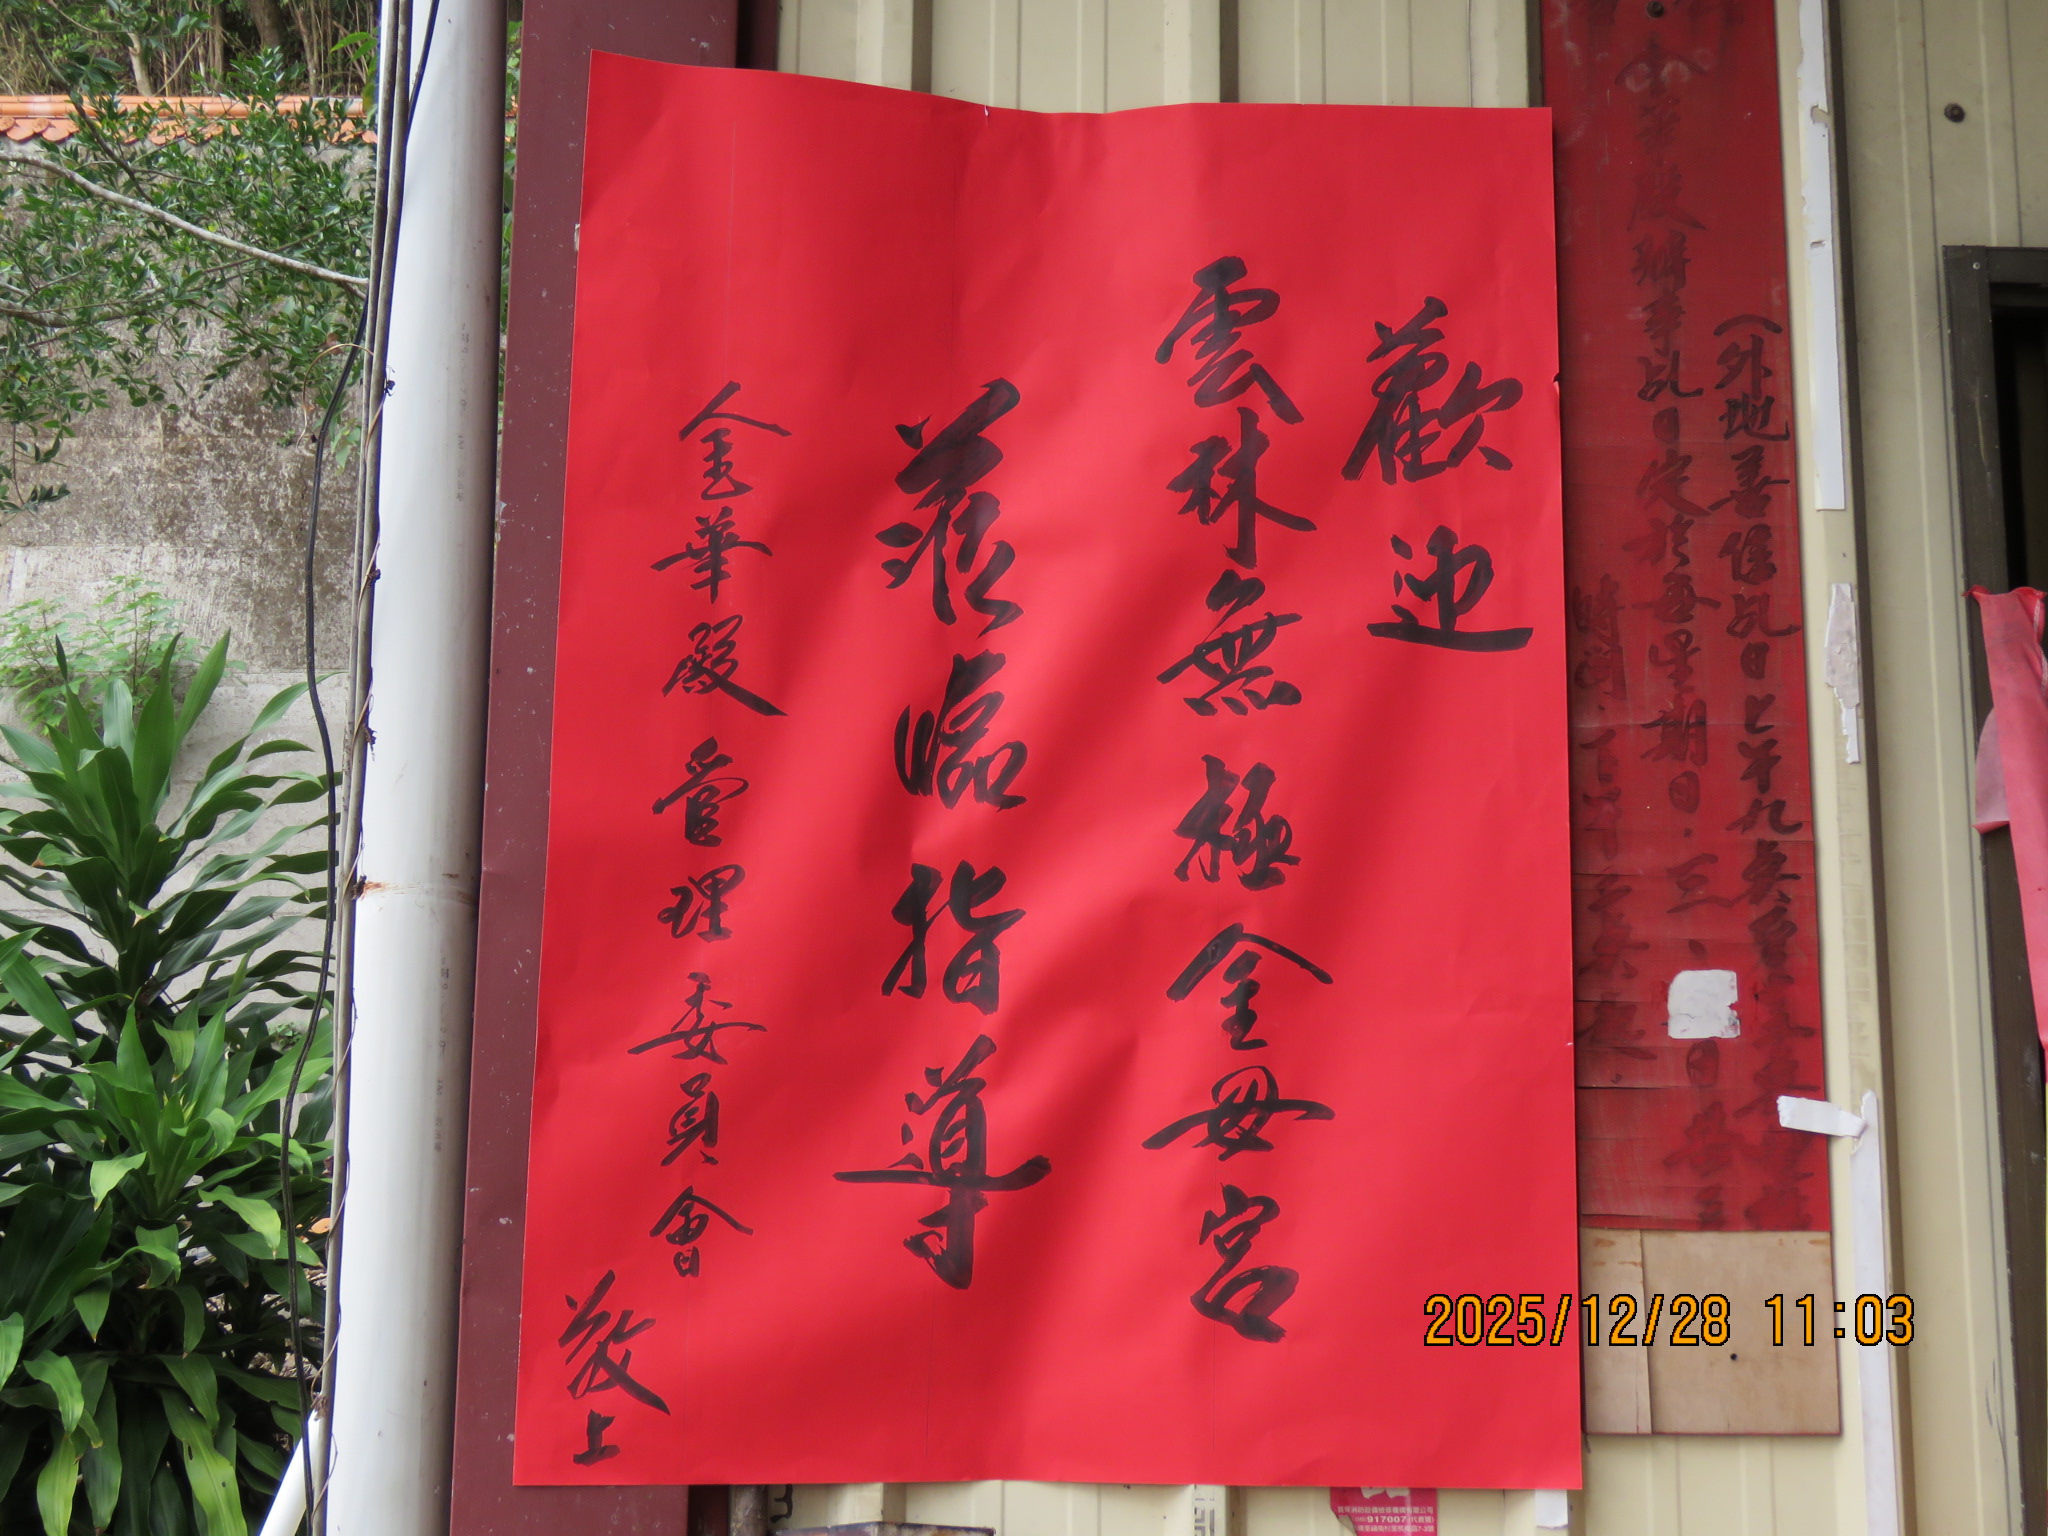 歡迎
雲林無極金母宮
蒞臨指導
金華殿管理委員會
敬上
(外地善信乩日上午九
金華殿辦事乩日定於每星期日.三、日
時間.下
917007
2025/12/28 11:03